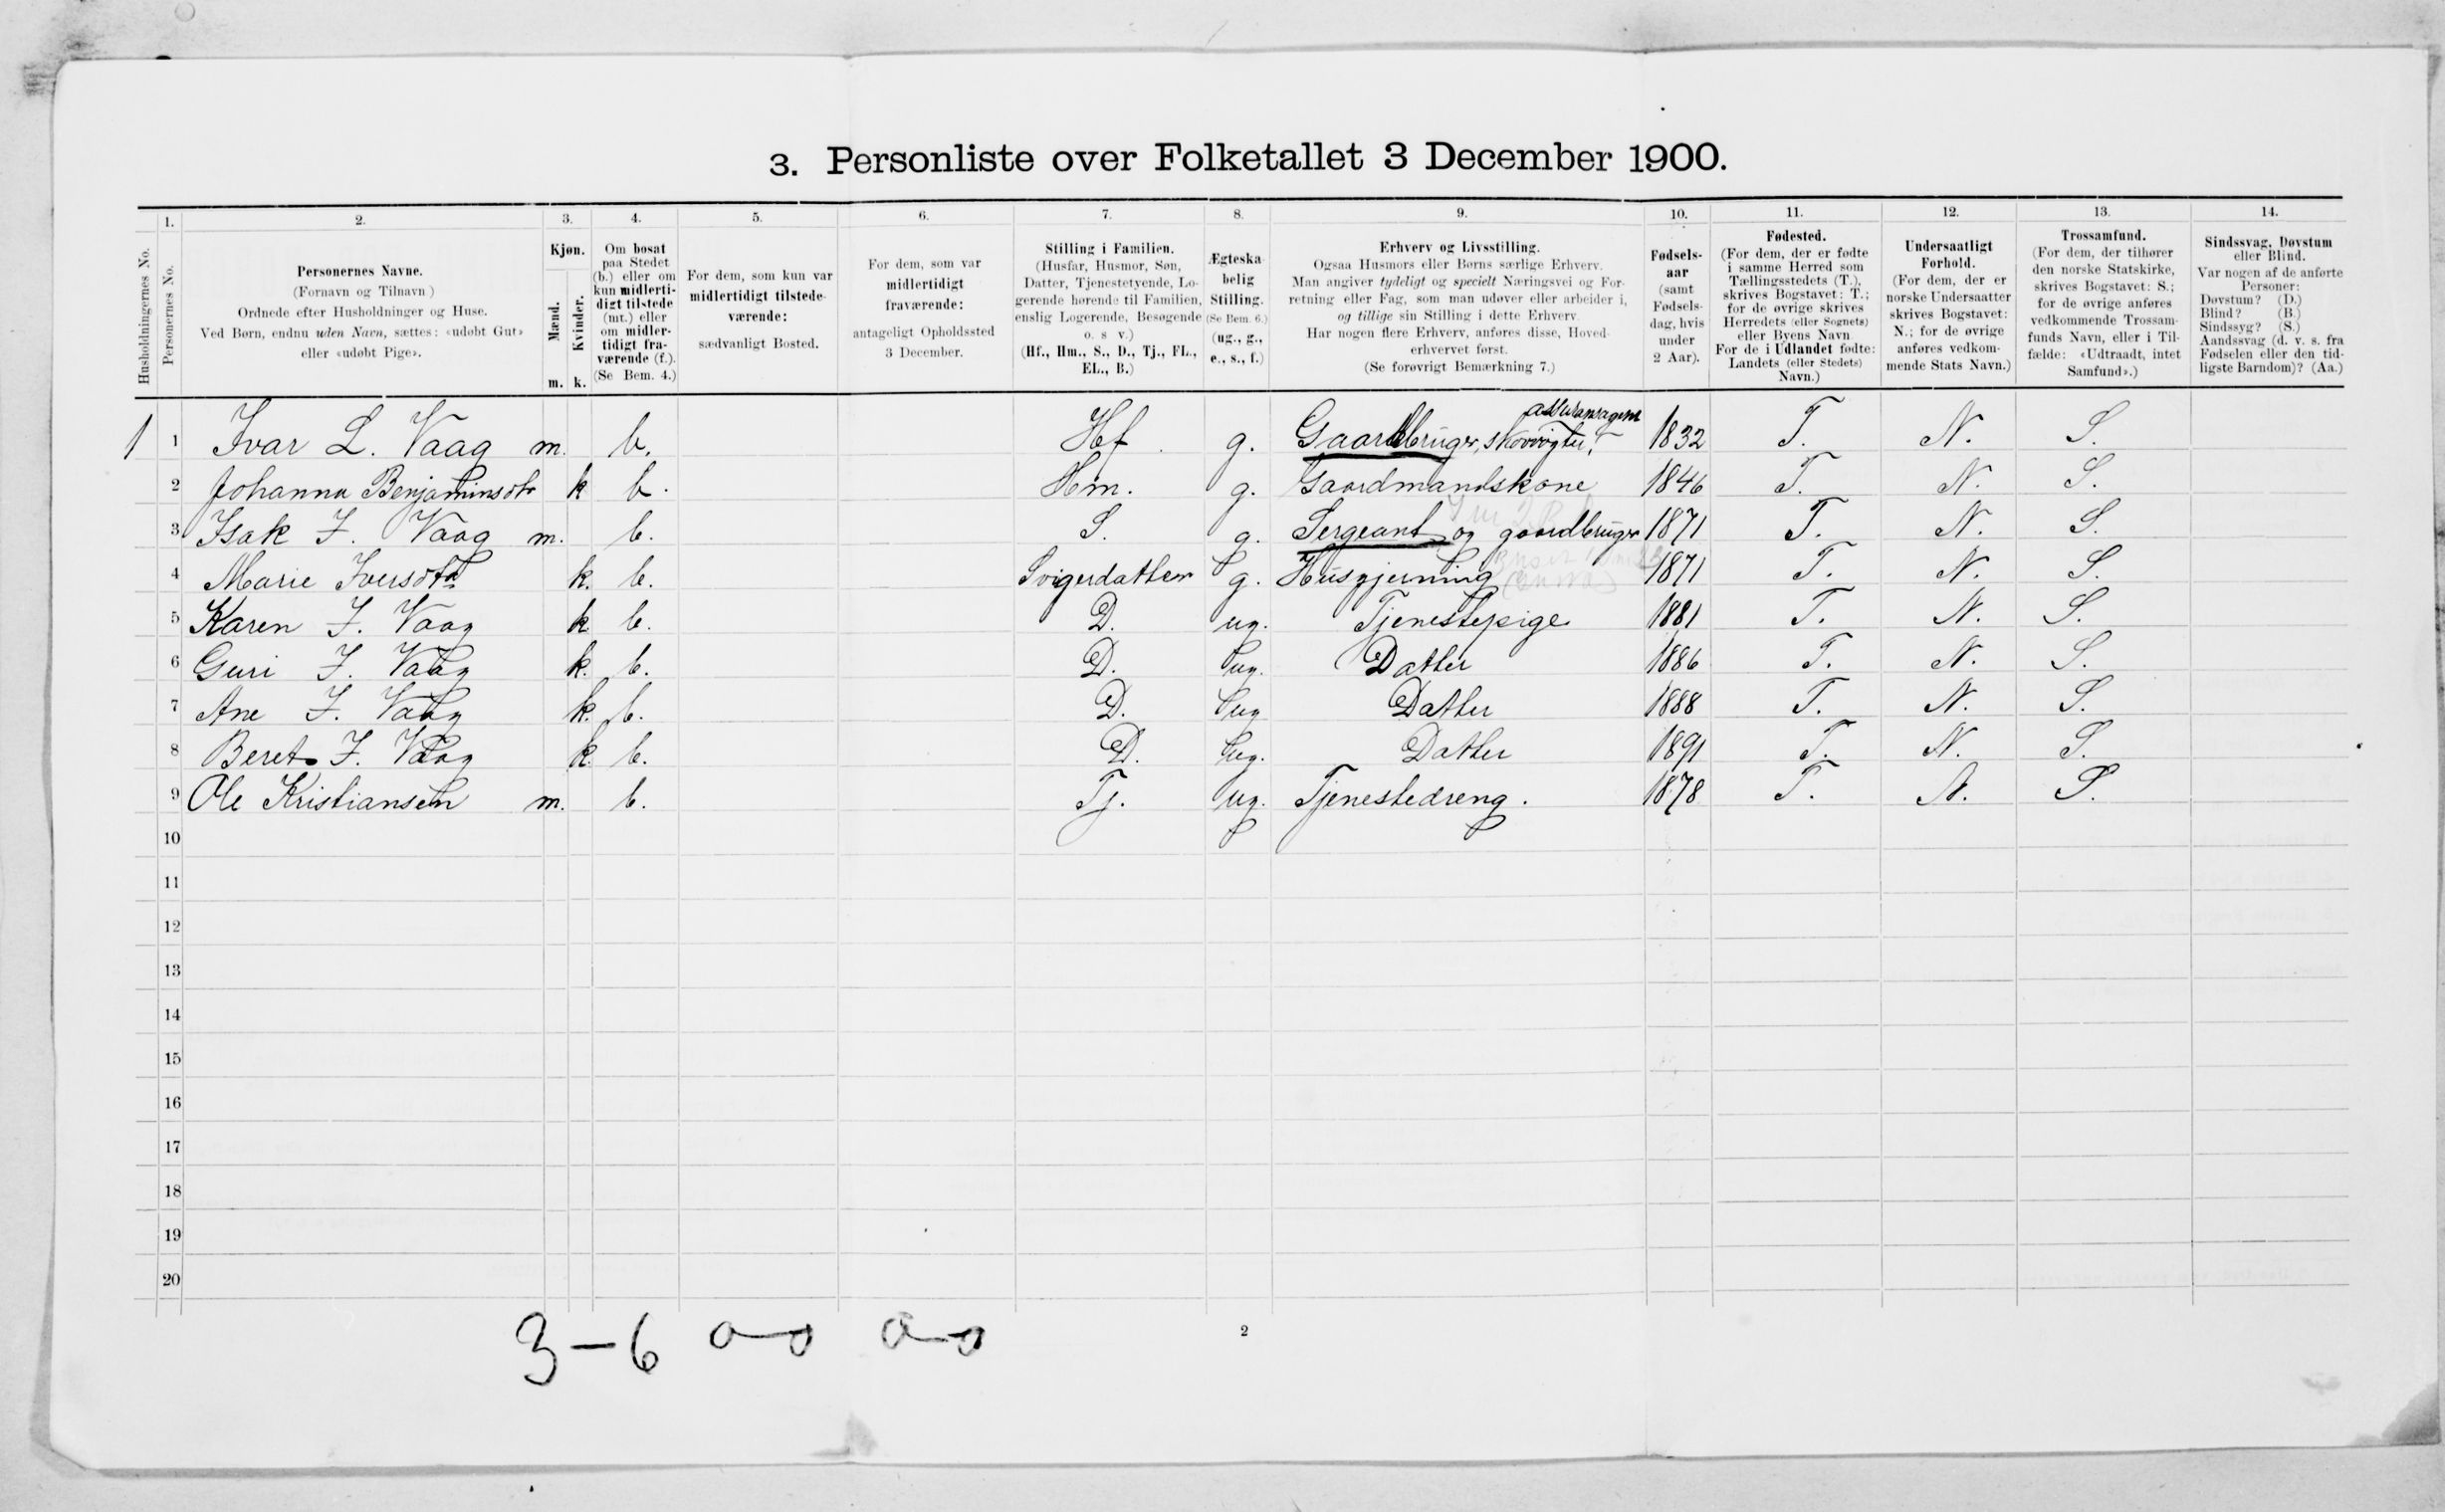 3. Personliste over Folketallet 3 December 1900.
1. 2. 3. 4. 5. 6. 7. 8. 9. 10. 11. 12. 13. 14.
Husholdningernes No.
Personernes No.
Personernes Navne.
(Fornavn og Tilnavn.)
Ordnede efter Husholdninger og Huse.
Ved Børn, endnu uden Navn, sættes: «udøbt Gut»
eller «udøbt Pige».
Kjøn.
Mænd.
Kvinder.
m. k.
Om bosat
paa Stedet
(b.) eller om
kun midlerti-
digt tilstede
(mt.) eller
om midler-
tidigt fra-
værende (f.).
(Se Bem. 4.)
For dem, som kun var
midlertidigt tilstede-
værende:
sædvanligt Bosted.
For dem, som var
midlertidigt
fraværende:
antageligt Opholdssted
3 December.
Stilling i Familien.
(Husfar, Husmor, Søn,
Datter, Tjenestetyende, Lo-
gerende hørende til Familien,
enslig Logerende, Besøgende
o. s v.)
(Hf., Hm., S., D., Tj., FL.,
EL., B.)
Ægteska-
belig
Stilling.
(Se Bem. 6.)
(ug., g.,
e., s., f.)
Erhverv og Livsstilling.
Ogsaa Husmors eller Børns særlige Erhverv.
Man angiver tydeligt og specielt Næringsvei og For-
retning eller Fag, som man udøver eller arbeider i,
og tillige sin Stilling i dette Erhverv.
Har nogen flere Erhverv, anføres disse, Hoved-
erhvervet først.
(Se forøvrigt Bemærkning 7.)
Fødsels-
aar
(samt
Fødsels-
dag, hvis
under
2 Aar).
Fødested.
(For dem, der er fødte
i samme Herred som
Tællingsstedets (T.),
skrives Bogstavet: T.;
for de øvrige skrives
Herredets (eller Sognets)
eller Byens Navn.
For de i Udlandet fødte:
Landets (eller Stedets)
Navn.)
Undersaatligt
Forhold.
(For dem, der er
norske Undersaatter
skrives Bogstavet:
N.; for de øvrige
anføres vedkom-
mende Stats Navn.)
Trossamfund.
(For dem, der tilhører
den norske Statskirke,
skrives Bogstavet: S.;
for de øvrige anføres
vedkommende Trossam-
funds Navn, eller i Til-
fælde: «Udtraadt, intet
Samfund».)
Sindssvag, Døvstum
eller Blind.
Var nogen af de anførte
Personer:
Døvstum? (D.)
Blind? (B.)
Sindssyg? (S.)
Aandssvag (d. v. s. fra
Fødselen eller den tid-
ligste Barndom)? (Aa.)
assuranseagent
1 1 Ivar L. Vaag m. b. Hf. g. Gaardbruger, skovvogter, 1832 T. N. S.
2 Johanna Benjaminsdtr k b. Hm. g. Gaardmandskone 1846 T. N. S.
3 Isak I. Vaag m. b. S. g. Sergeant og gaardbruger 1871 T. N. S.
4 Marie Iversdtr k. b. Svigerdatter g. Husgjerning 1871 T. N. S.
5 Karen I. Vaag k b. D. ug. Tjenestepige 1881 T. N. S.
6 Guri I. Vaag k. b. D. ug. Datter 1886 T. N. S.
7 Ane I. Vaag k. b. D. ug Datter 1888 T. N. S.
8 Beret I. Vaag k. b. D. ug. Datter 1891 T. N. S.
9 Ole Kristiansen m. b. Tj. ug. Tjenestedreng. 1878 T. N. S.
10
11
12
13
14
15
16
17
18
19
20
3-6 0-0 0-0
2